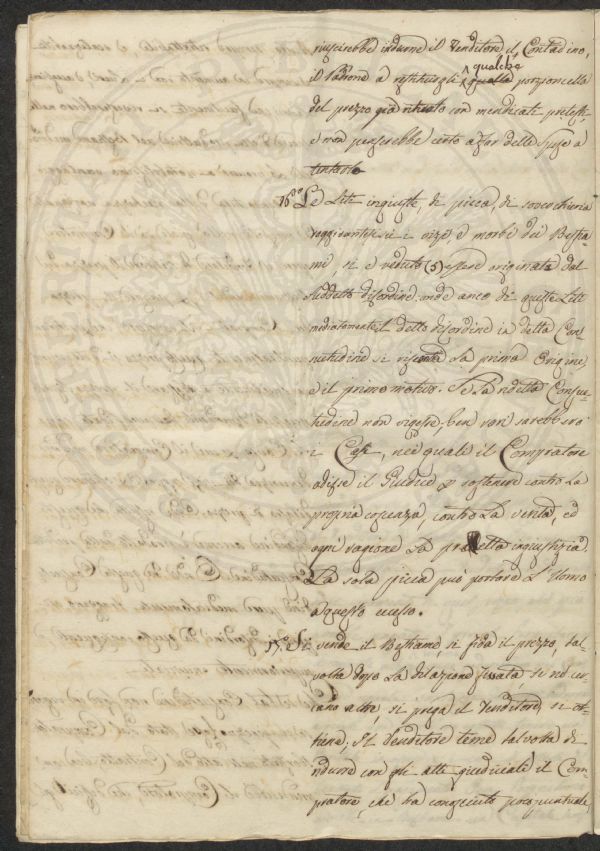 riuscirebbe indurne il Venditore, il Contadino,
il Padrone a restituirgli qualche porzioncella
del prezzo già ritirato con mendicati pretesti,
e non penserebbe certo a far delle spese a
tentarlo
16.º Le Liti ingiuste, di picca, di soverchieria
raggirantisi su i vizj, e morbi dei Bestia
mi, si è veduto (5) essere originata dal
suddetto disordine onde anco di queste Liti
mediatamente il detto disordine ia detta Con-
suetudine si la prima Origine,
e il primo motivo. Se la ridetta Consue-
tudine non vigesse, ben rari sarebbero
i Casi, nei quali il Compratore
adisse il Giudice p sostenere contro la
propria coscenza, contro la verità, ed
ogni ragione la predetta ingiustizia.
La sola picca può portare l'Uomo
a questo eccesso.
17.º Si vende il Bestiame si fida il prezzo, tal-
volta dopo la dilazione fissata se ne cer-
cano altre, si prega il Venditore, si ot-
tiene; Il Venditore teme talvolta di
indurre con gli atti giudiciali il Com-
pratore, che ha conosciuto poco puntuale,